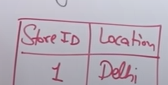 Store ID Location
1 Delhi